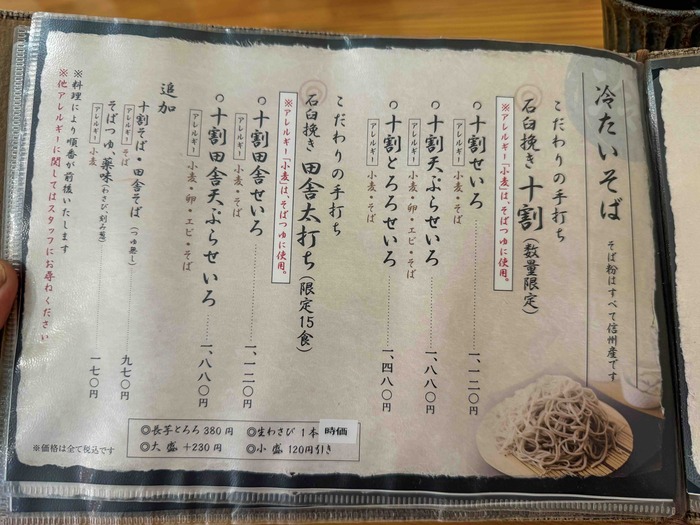 冷たいそば
そば粉はすべて信州産です
こだわりの手打ち
石臼挽き 十割(数量限定)
※アレルギー「小麦」は、そばつゆに使用。
○十割せいろ 一、一二〇円
アレルギー 小麦・そば
○十割天ぷらせいろ 一、八八〇円
アレルギー 小麦・卵・エビ・そば
○十割とろろせいろ 一、四八〇円
アレルギー 小麦・そば
こだわりの手打ち
石臼挽き 田舎太打ち(限定15食)
※アレルギー「小麦」は、そばつゆに使用。
○十割田舎せいろ 一、一二〇円
アレルギー 小麦・そば
○十割田舎天ぷらせいろ 一、八八〇円
アレルギー 小麦・卵・エビ・そば
追加
十割そば・田舎そば(つゆ無し) 九七〇円
アレルギー そば
そばつゆ 薬味(わさび、刻み葱) 一七〇円
アレルギー 小麦
※料理により順番が前後いたします
※他アレルギーに関してはスタッフにお尋ねください
◎長芋とろろ 380円 ◎生わさび 1本 時価
◎大盛 +230円 ◎小盛 120円引き
※価格は全て税込です